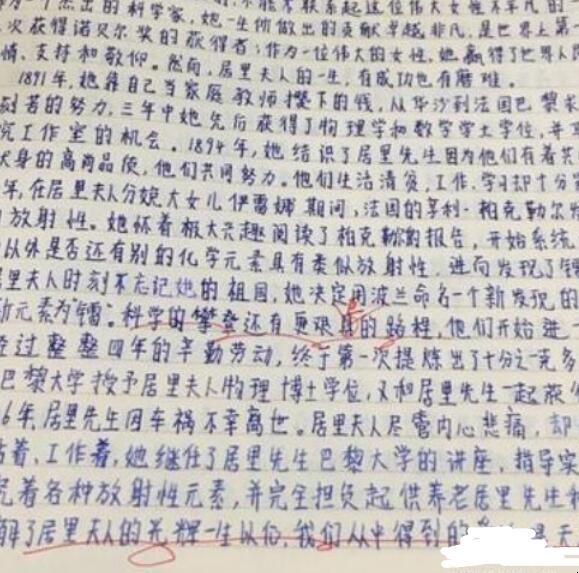 一个杰出的科学家,她一生所做出的贡献卓越非凡,是世界上第一
次获得诺贝尔奖的获得者;作为一位伟大的女性,她赢得了世界人
情、支持和敬仰。然而,居里夫人的一生,有成功也有磨难。
1891年,她靠自己当家庭教师攒下的钱,从华沙到法国巴黎求
刻苦的努力,三年中她先后获得了物理学和数学学士学位,并
究工作室的机会。1894年,她结识了居里先生因为他们有着共
献身的高尚品质,他们共同努力。他们生活清贫,工作、学习却十分
年,在居里夫人分娩大女儿伊雷娜期间,法国的亨利·柏克勒尔发
放射性。她怀着极大兴趣阅读了柏克勒尔的报告,开始系统
以外是否还有别的化学元素具有类似放射性,进而发现了镭
居里夫人时刻不忘记她的祖国,她决定用波兰命名一个新发现的
元素为"镭"。科学的攀登还有更艰难的路程,他们开始进一
经过整整四年的辛勤劳动,终于第一次提炼出了十分之一克多
巴黎大学授予居里夫人物理博士学位,又和居里先生一起获
6年,居里先生因车祸不幸离世。居里夫人尽管内心悲痛,却
着、工作着,她继任了居里先生巴黎大学的讲座,指导实
究着各种放射性元素,并完全担负起供养老居里先生
解了居里夫人的光辉一生以后,我们从中得到的